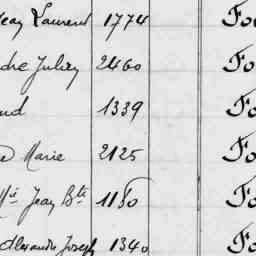 Jean Laurent 1774 Fo
dre Julien 2460 Fo
1339 Fo
Marie 2125 Fo
Jean Bte 1180 Fo
Alexandre Joseph 1340 Fo